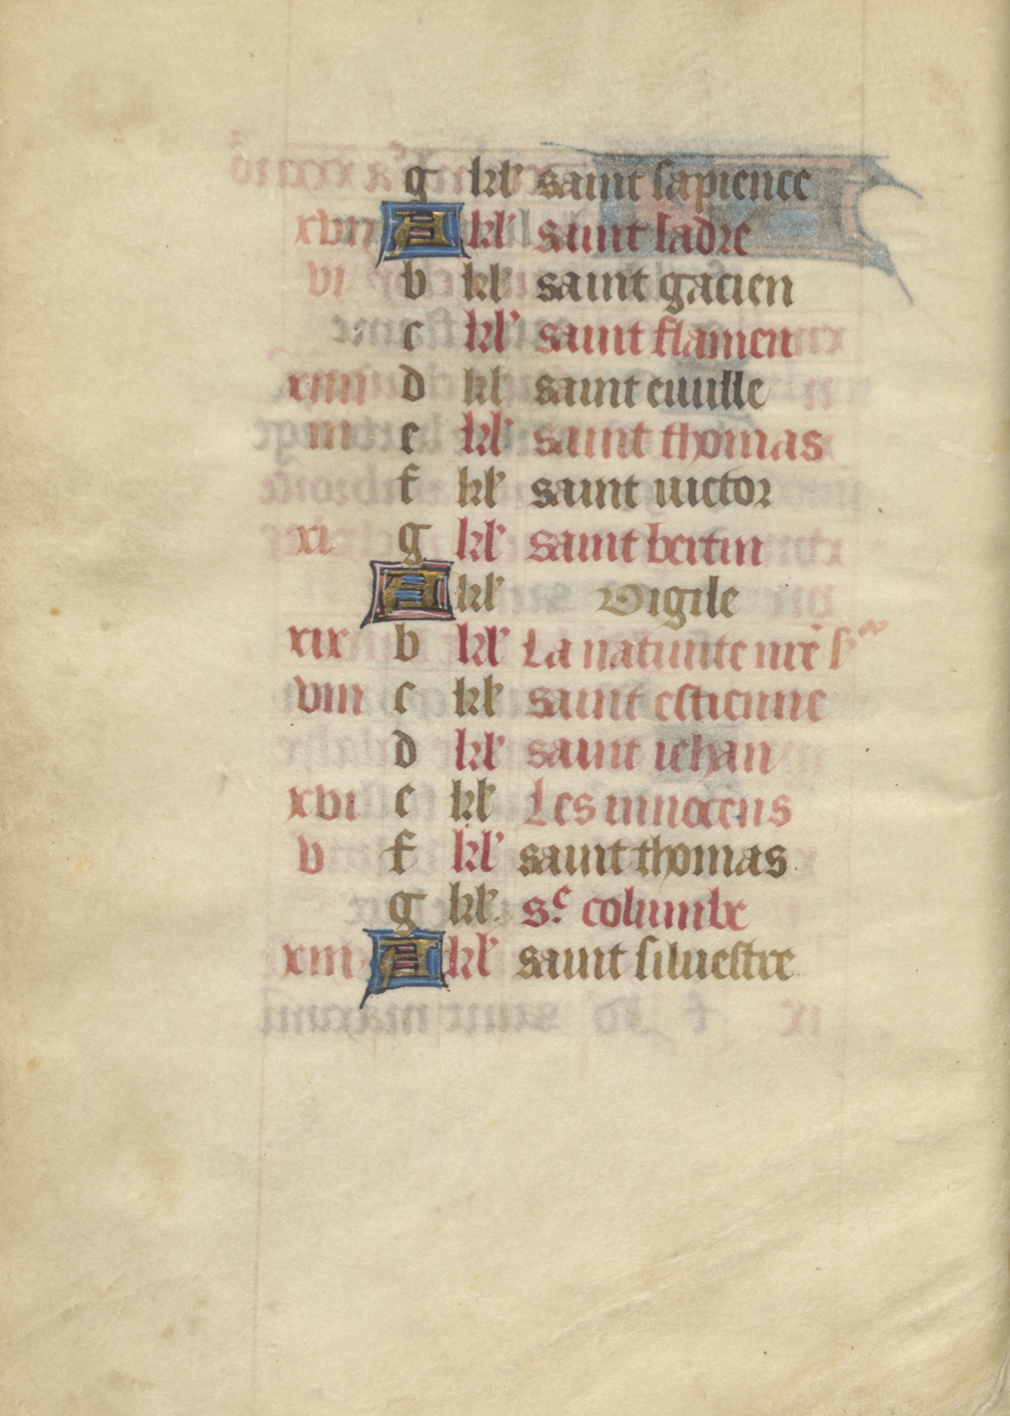 g kl' saint sapience
xvii A kl' saint ladre
vi b kl' saint gacien
c kl' saint flamen
xiiii d kl' saint euuille
iii e kl' saint thomas
f kl' saint uictor
xi g kl' saint bertin
A kl' Vigile
xix b kl' La natiuite nrē sr
viii c kl' saint estienne
d kl' saint iehan
xvi e kl' Les innocens
v f kl' saint thomas
g kl' s.e columbe
xiii A kl' saint siluestre